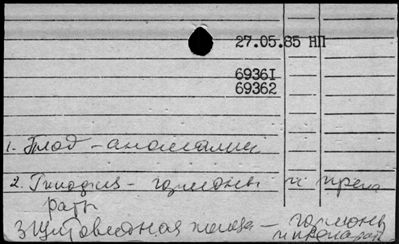 27.05.85 НП
69361
69362
1. Плод - аномалии
2. Гипофиз - гормоны и препа
раты
3 Щитовидная железа - гормоны
и препарат